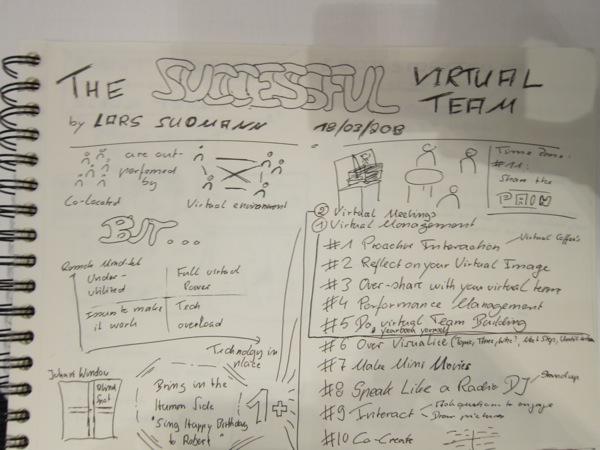 THE SUCCESSFUL VIRTUAL TEAM
by LARS SUDMANN 18/03/2013
are out-
performed
by
Co-located
Virtual environment
BUT...
Remote Mind-set
Under-
utilized
Full virtual
Power
Insure to make
it work
Tech
overload
Technology in
place
Johari Window
Blind
Spot
Bring in the
Human Side
"Sing Happy Birthday
to Robert"
1+
Time Zone:
#11:
Share the
PAIN
② Virtual Meetings
① Virtual Management
#1 Proactive Interaction
Virtual Coffee's
#2 Reflect on your Virtual Image
#3 Over-share with your virtual team
#4 Performance Management
#5 Do virtual Team Building
yearbook yourself
#6 Over Visualise
#7 Make Mini Movies
#8 Speak Like a Radio DJ
Stand up
#9 Interact
Ask questions to engage
Draw pictures
#10 Co-Create